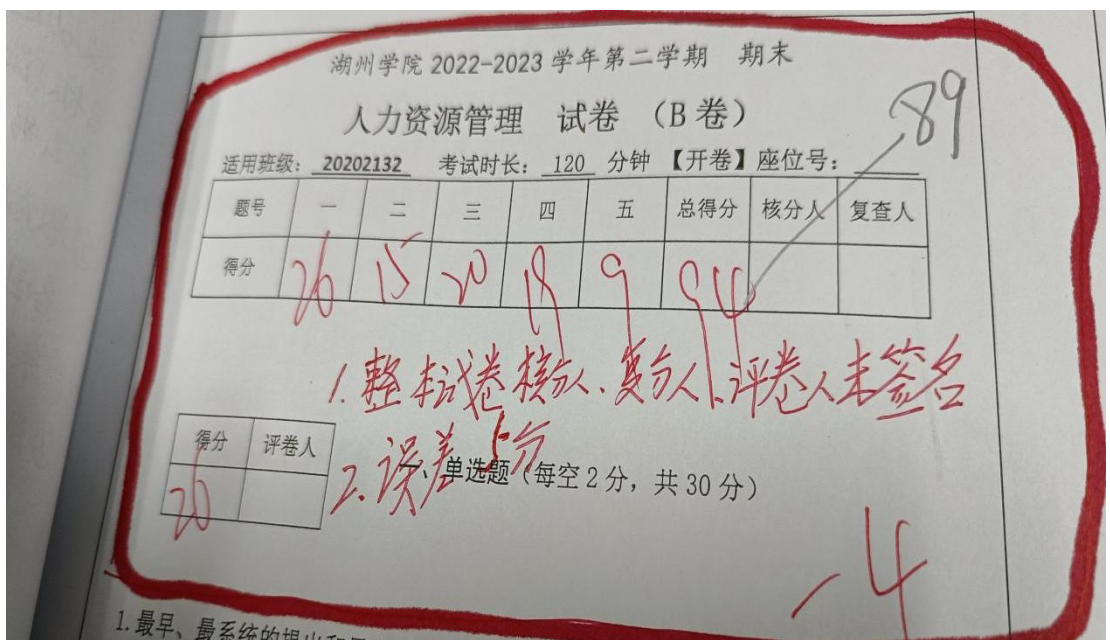 湖州学院 2022-2023 学年第二学期 期末
人力资源管理 试卷 （B 卷）
89
适用班级： 20202132 考试时长： 120 分钟 【开卷】座位号：
题号 一 二 三 四 五 总得分 核分人 复查人
得分 26 15 20 19 9 94
1. 整本试卷核分人、复分人、评卷人未签名
得分 评卷人
26
2. 误差5分
一、单选题（每空 2 分，共 30 分）
-4
1.最早、最系统的提出和